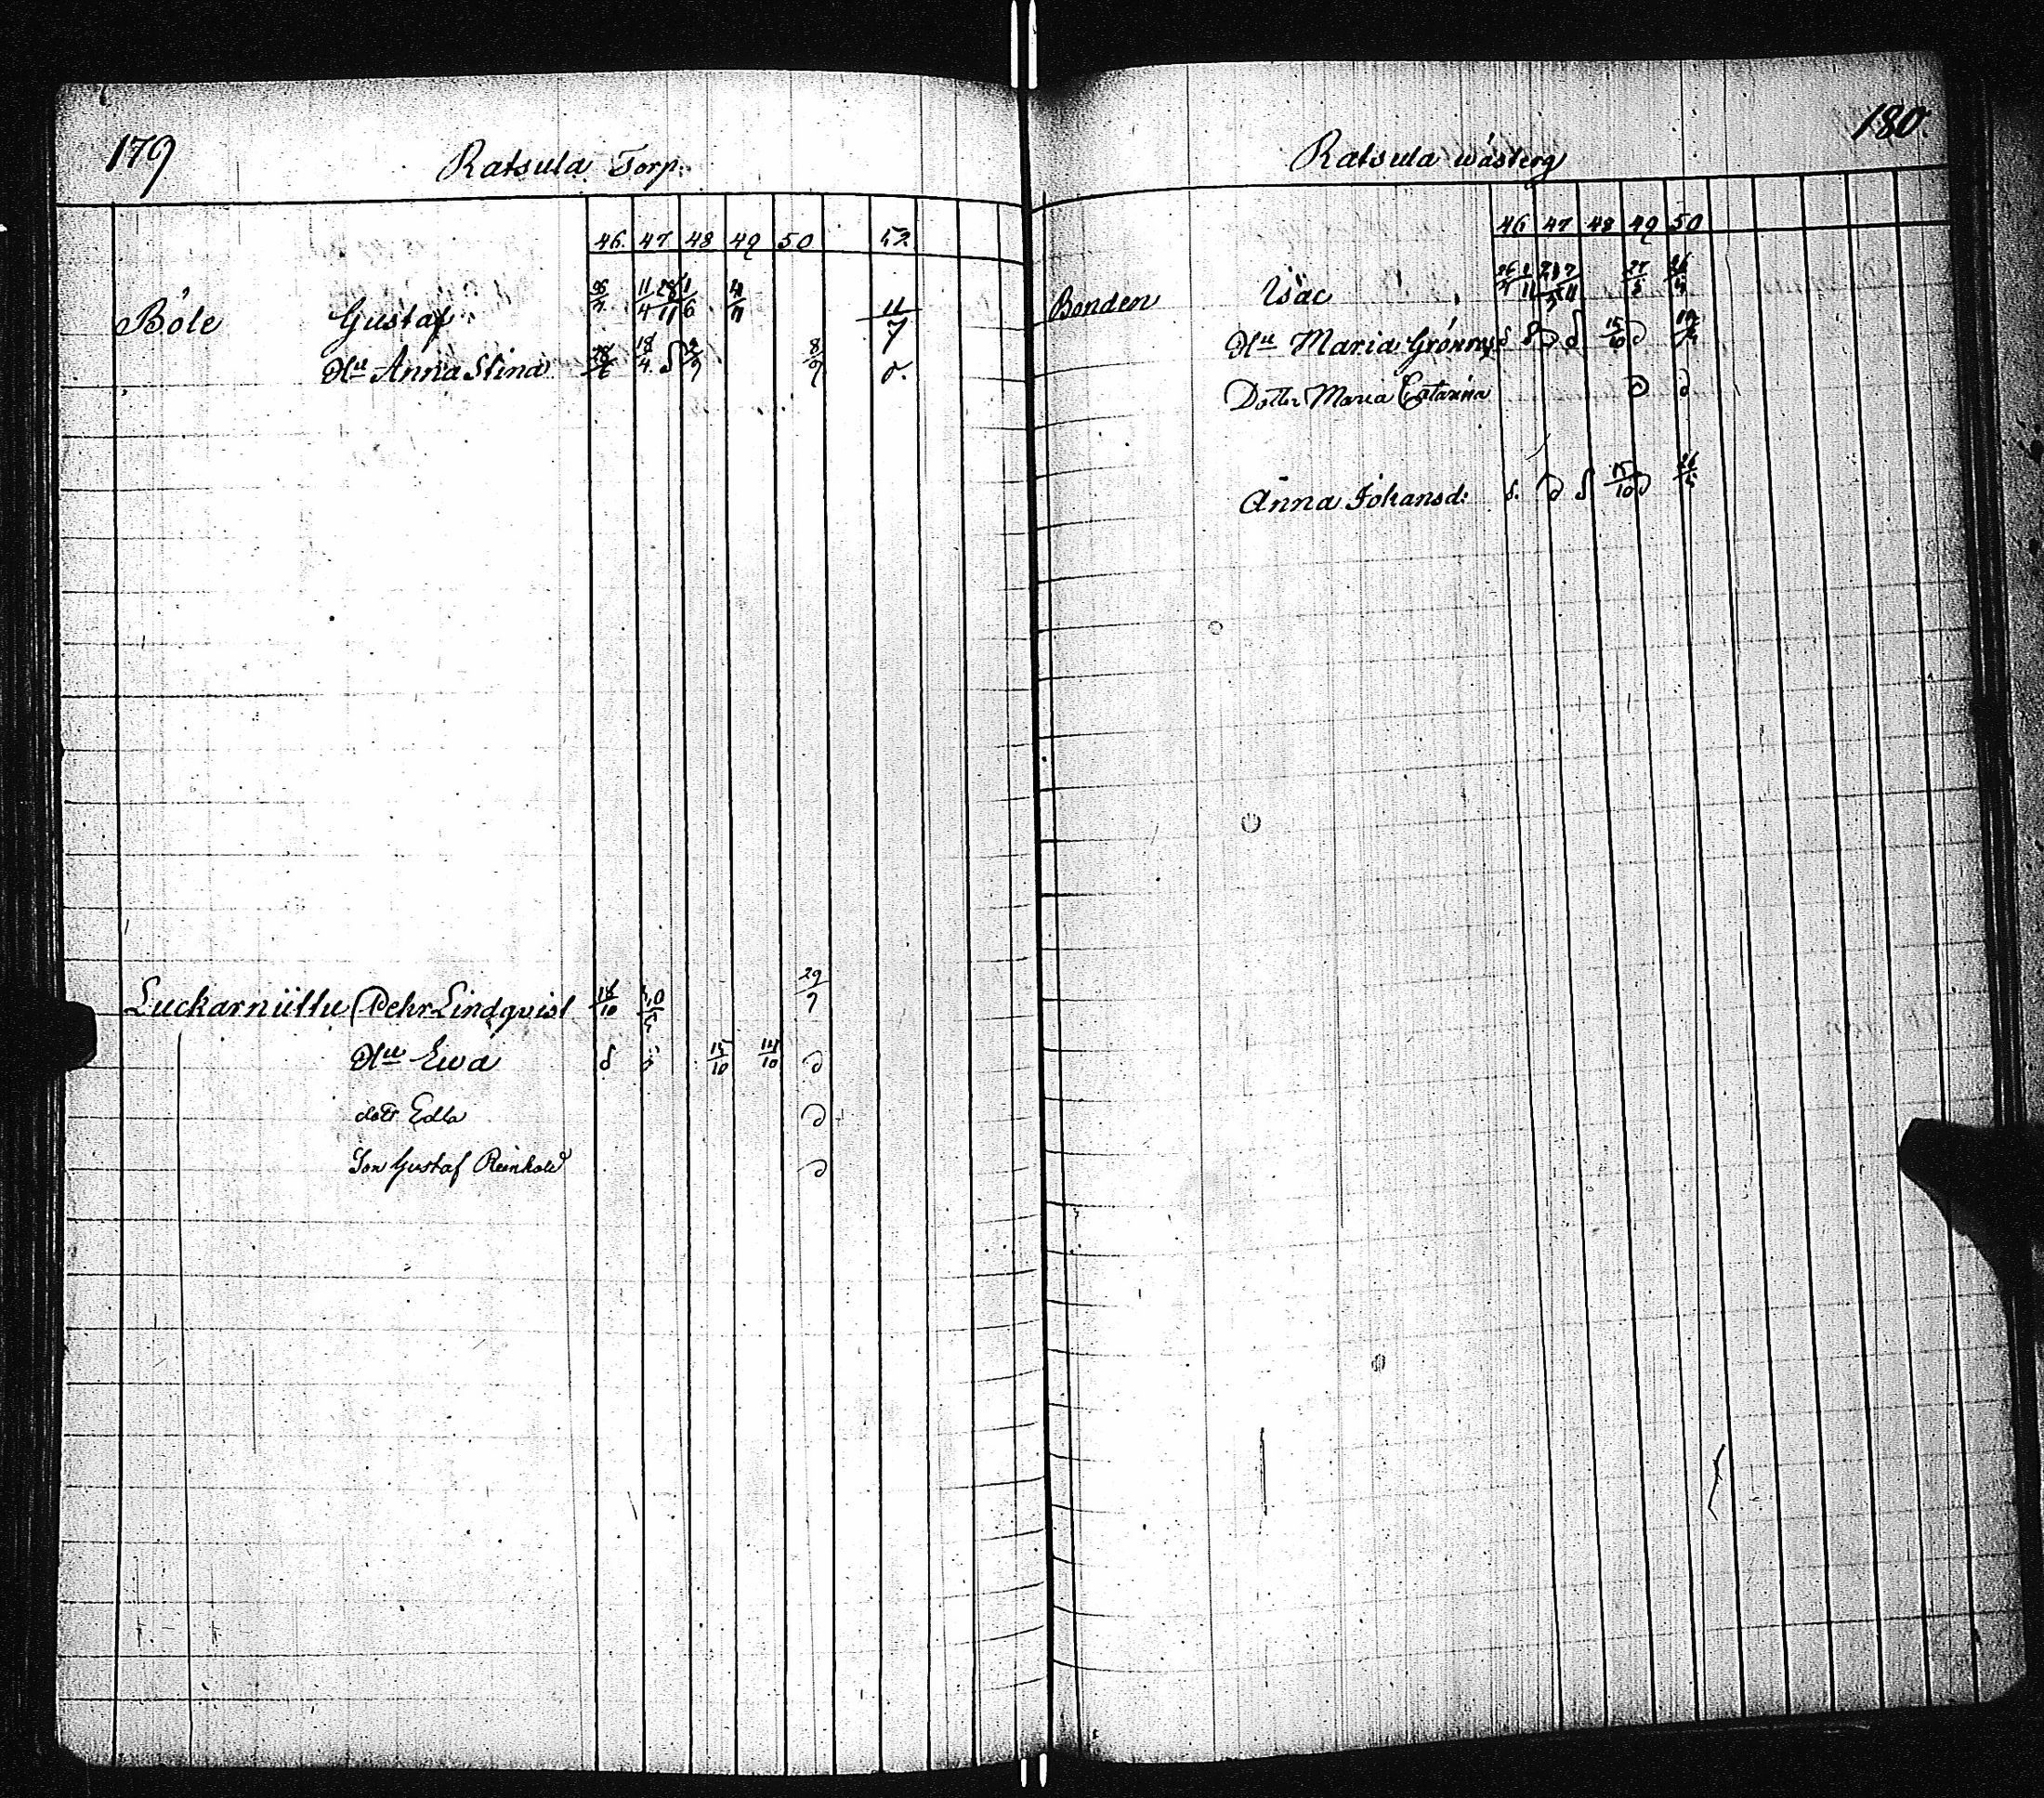 179
Ratsula Torp.
46. 47 48 49 50 52
Böle Gustaf 11/4 1/6 11/7
Hu Anna Stina 18/4 8/9 d.
Luckarniittu Pehr Lindqvist 18/10 29/9
Hu Ewa d d 15/10 14/10 d
dotr Edla d
Son Gustaf Reinhold d
180.
Ratsula wäsberg
46 47 48 49 50
Bonden Isac
Hu Maria Grönroos d d d d 15/10 d
Dotter Maria Catarina d d
Anna Johansd: d. d d 15/10 d